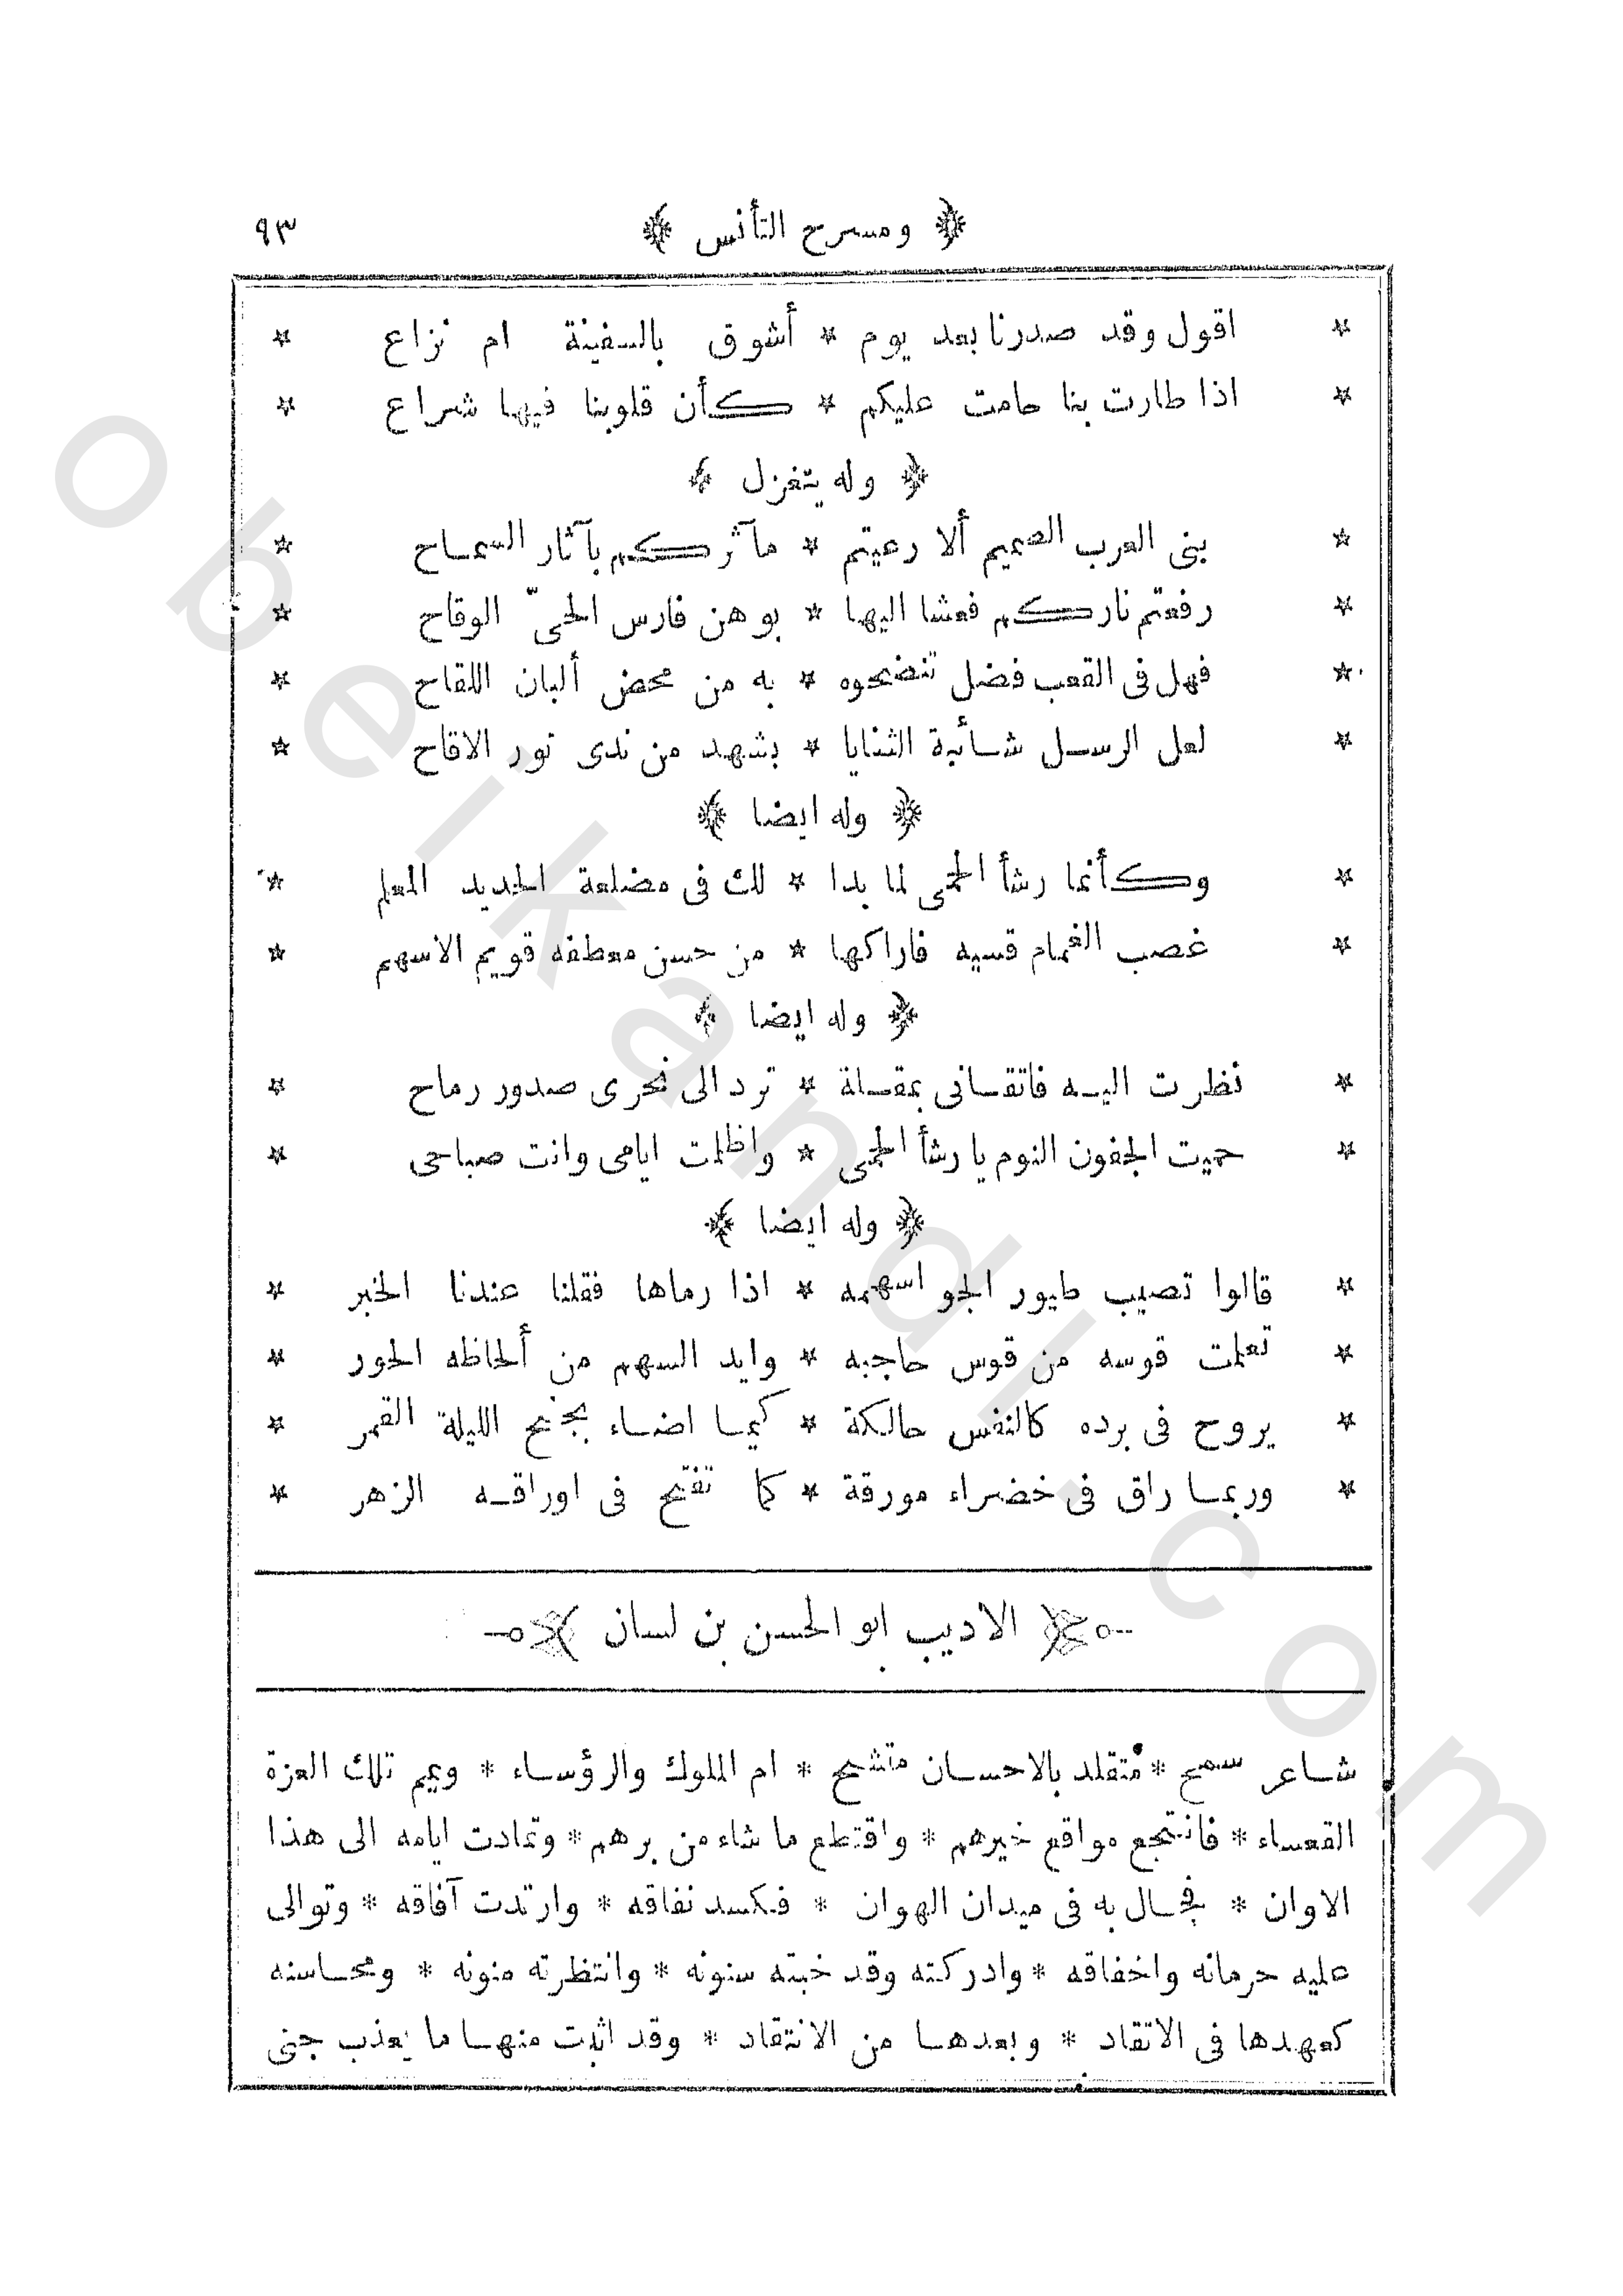 ﴿ ومسرح التأنس ﴾ ٩٣
* اقول وقد صدرنا بعد يوم * أشوق بالسفينة ام نزاع *
* اذا طارت بنا حامت عليكم * كأن قلوبنا فيها شراع *
﴿ وله يتغزل ﴾
* بنى العرب الصميم ألا رعيتم * مآثركم بآثار السماح *
* رفعتم ناركم فعشا اليها * بوهن فارس الحىّ الوقاح *
* فهل فى القعب فضل تنضحوه * به من محض ألبان اللقاح *
* لعل الرسل شائبة الثنايا * بشهد من ندى نور الاقاح *
﴿ وله ايضا ﴾
* وكأنما رشأ الحمى لما بدا * لك فى مضلعة الحديد المعلم *
* غصب الغمام قسيه فاراكها * من حسن معطفه قويم الاسهم *
﴿ وله ايضا ﴾
* نظرت اليه فاتقانى بمقلة * ترد الى نحرى صدور رماح *
* حميت الجفون النوم يا رشأ الحمى * واظلمت ايامى وانت صباحى *
﴿ وله ايضا ﴾
* قالوا تصيب طيور الجو اسهمه * اذا رماها فقلنا عندنا الخبر *
* تعلمت قوسه من قوس حاجبه * وايد السهم من ألحاظه الحور *
* يروح فى برده كالنفس حالكة * كما اضاء بجنح الليلة القمر *
* وربما راق فى خضراء مورقة * كما تفتح فى اوراقه الزهر *
﴿ الاديب ابو الحسن بن لسان ﴾
شاعر سمح * متقلد بالاحسان متشح * ام الملوك والرؤساء * ويمم تلك العزة
القعساء * فانتجع مواقع خيرهم * واقتطع ما شاء من برهم * وتمادت ايامه الى هذا
الاوان * فجال به فى ميدان الهوان * فكسد نفاقه * وارتدت آفاقه * وتوالى
عليه حرمانه واخفاقه * وادركته وقد خبته سنونه * وانتظرته منونه * ومحاسنه
كعهدها فى الاتقاد * وبعدها من الانتقاد * وقد اثبت منها ما يعذب جنى
obeikandl.com